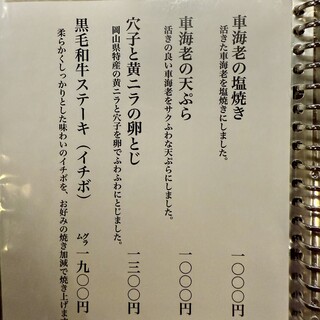 車海老の塩焼き
活きた車海老を塩焼きにしました。
一〇〇〇円
車海老の天ぷら
活きの良い車海老をサクふわな天ぷらにしました。
一〇〇〇円
穴子と黄ニラの卵とじ
岡山県特産の黄ニラと穴子を卵でふわふわにとじました。
一三〇〇円
黒毛和牛ステーキ（イチボ）
柔らかくしっかりとした味わいのイチボを、お好みの焼き加減で焼き上げます
グラム一九〇〇円